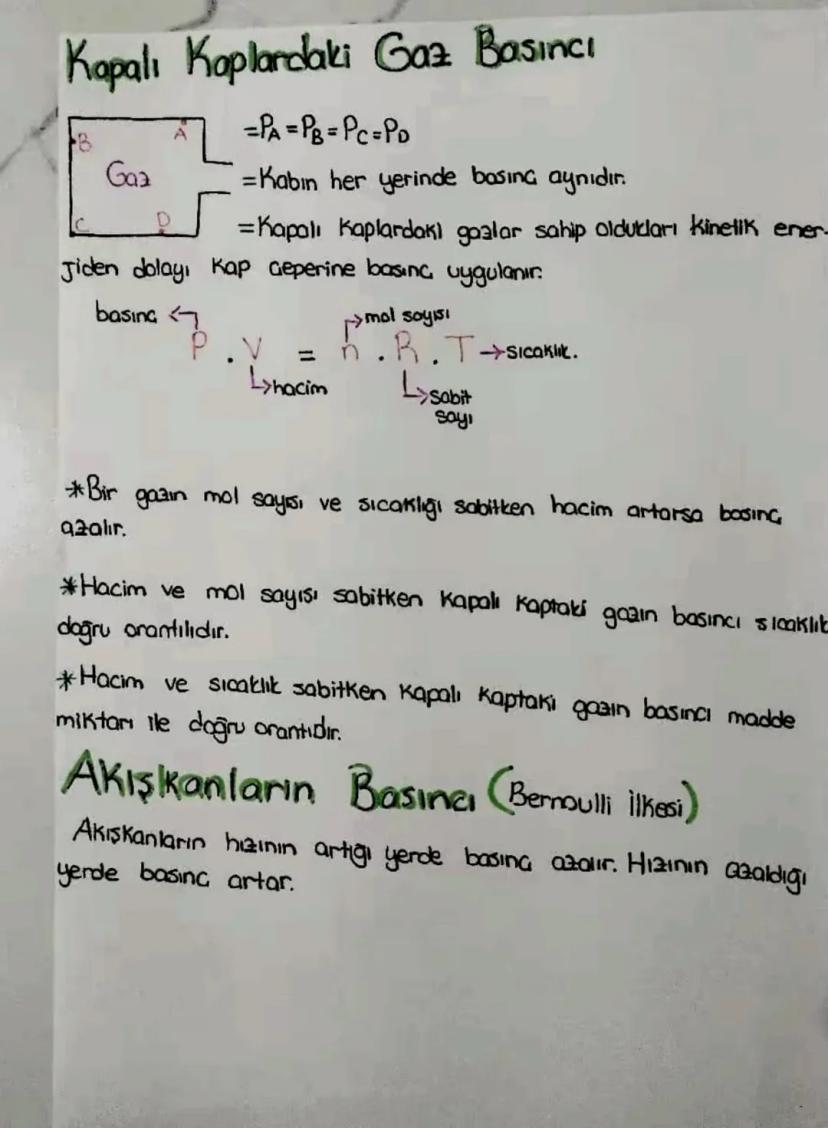 Kapalı Kaplardaki Gaz Basıncı
B A
Gaz
C D
=PA=PB=PC=PD
=Kabın her yerinde basınç aynıdır.
=Kapalı Kaplardaki gazlar sahip oldukları kinetik ener-
jiden dolayı Kap çeperine basınç uygulanır.
basınç mol sayısı
P . V = n . R . T → sıcaklık.
hacim sabit
sayı
*Bir gazın mol sayısı ve sıcaklığı sabitken hacim artarsa basınç
azalır.
*Hacim ve mol sayısı sabitken Kapalı Kaptaki gazın basıncı sıcaklık
doğru orantılıdır.
*Hacim ve sıcaklık sabitken Kapalı Kaptaki gazın basıncı madde
miktarı ile doğru orantıdır.
Akışkanların Basıncı (Bernoulli İlkesi)
Akışkanların hızının artığı yerde basınç azalır. Hızının azaldığı
yerde basınç artar.